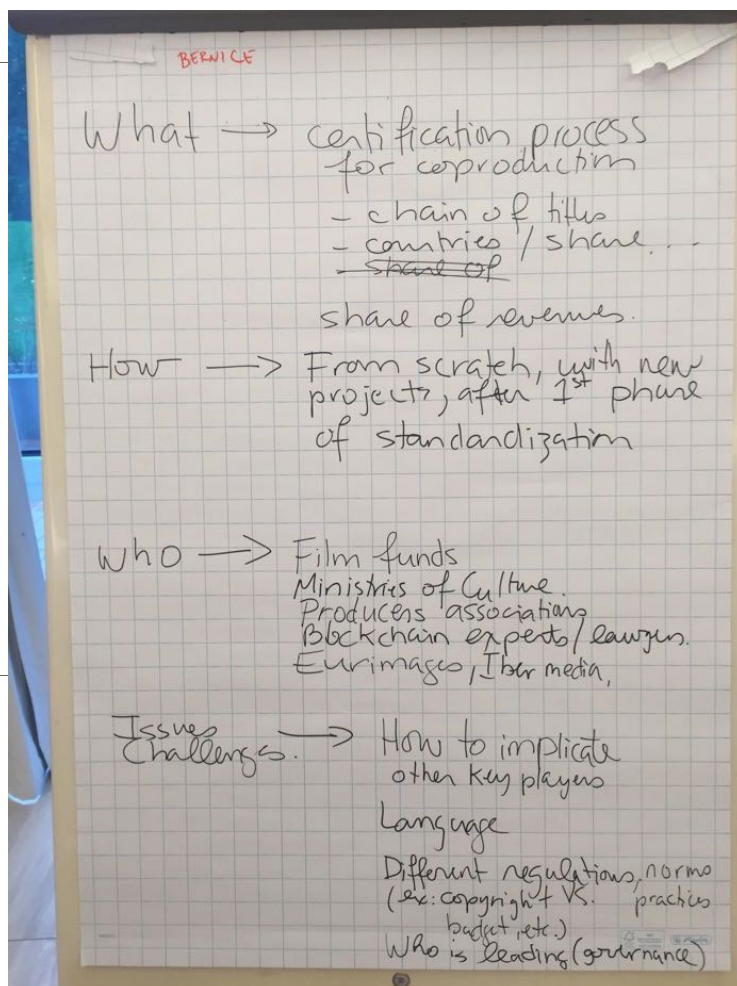 BERNICE
What → certification process
for coproduction
- chain of titles
- countries / share...
- share of
share of revenues.
How → From scratch, with new
projects, after 1st phase
of standardization
Who → Film funds
Ministries of Culture.
Producers associations
Blockchain experts / lawyers.
Eurimages, Iber media,
Issues → How to implicate
Challenges. other key players
Language
Different regulations, norms
(ex: copyright vs. practices
budget, etc.)
Who is leading (governance)